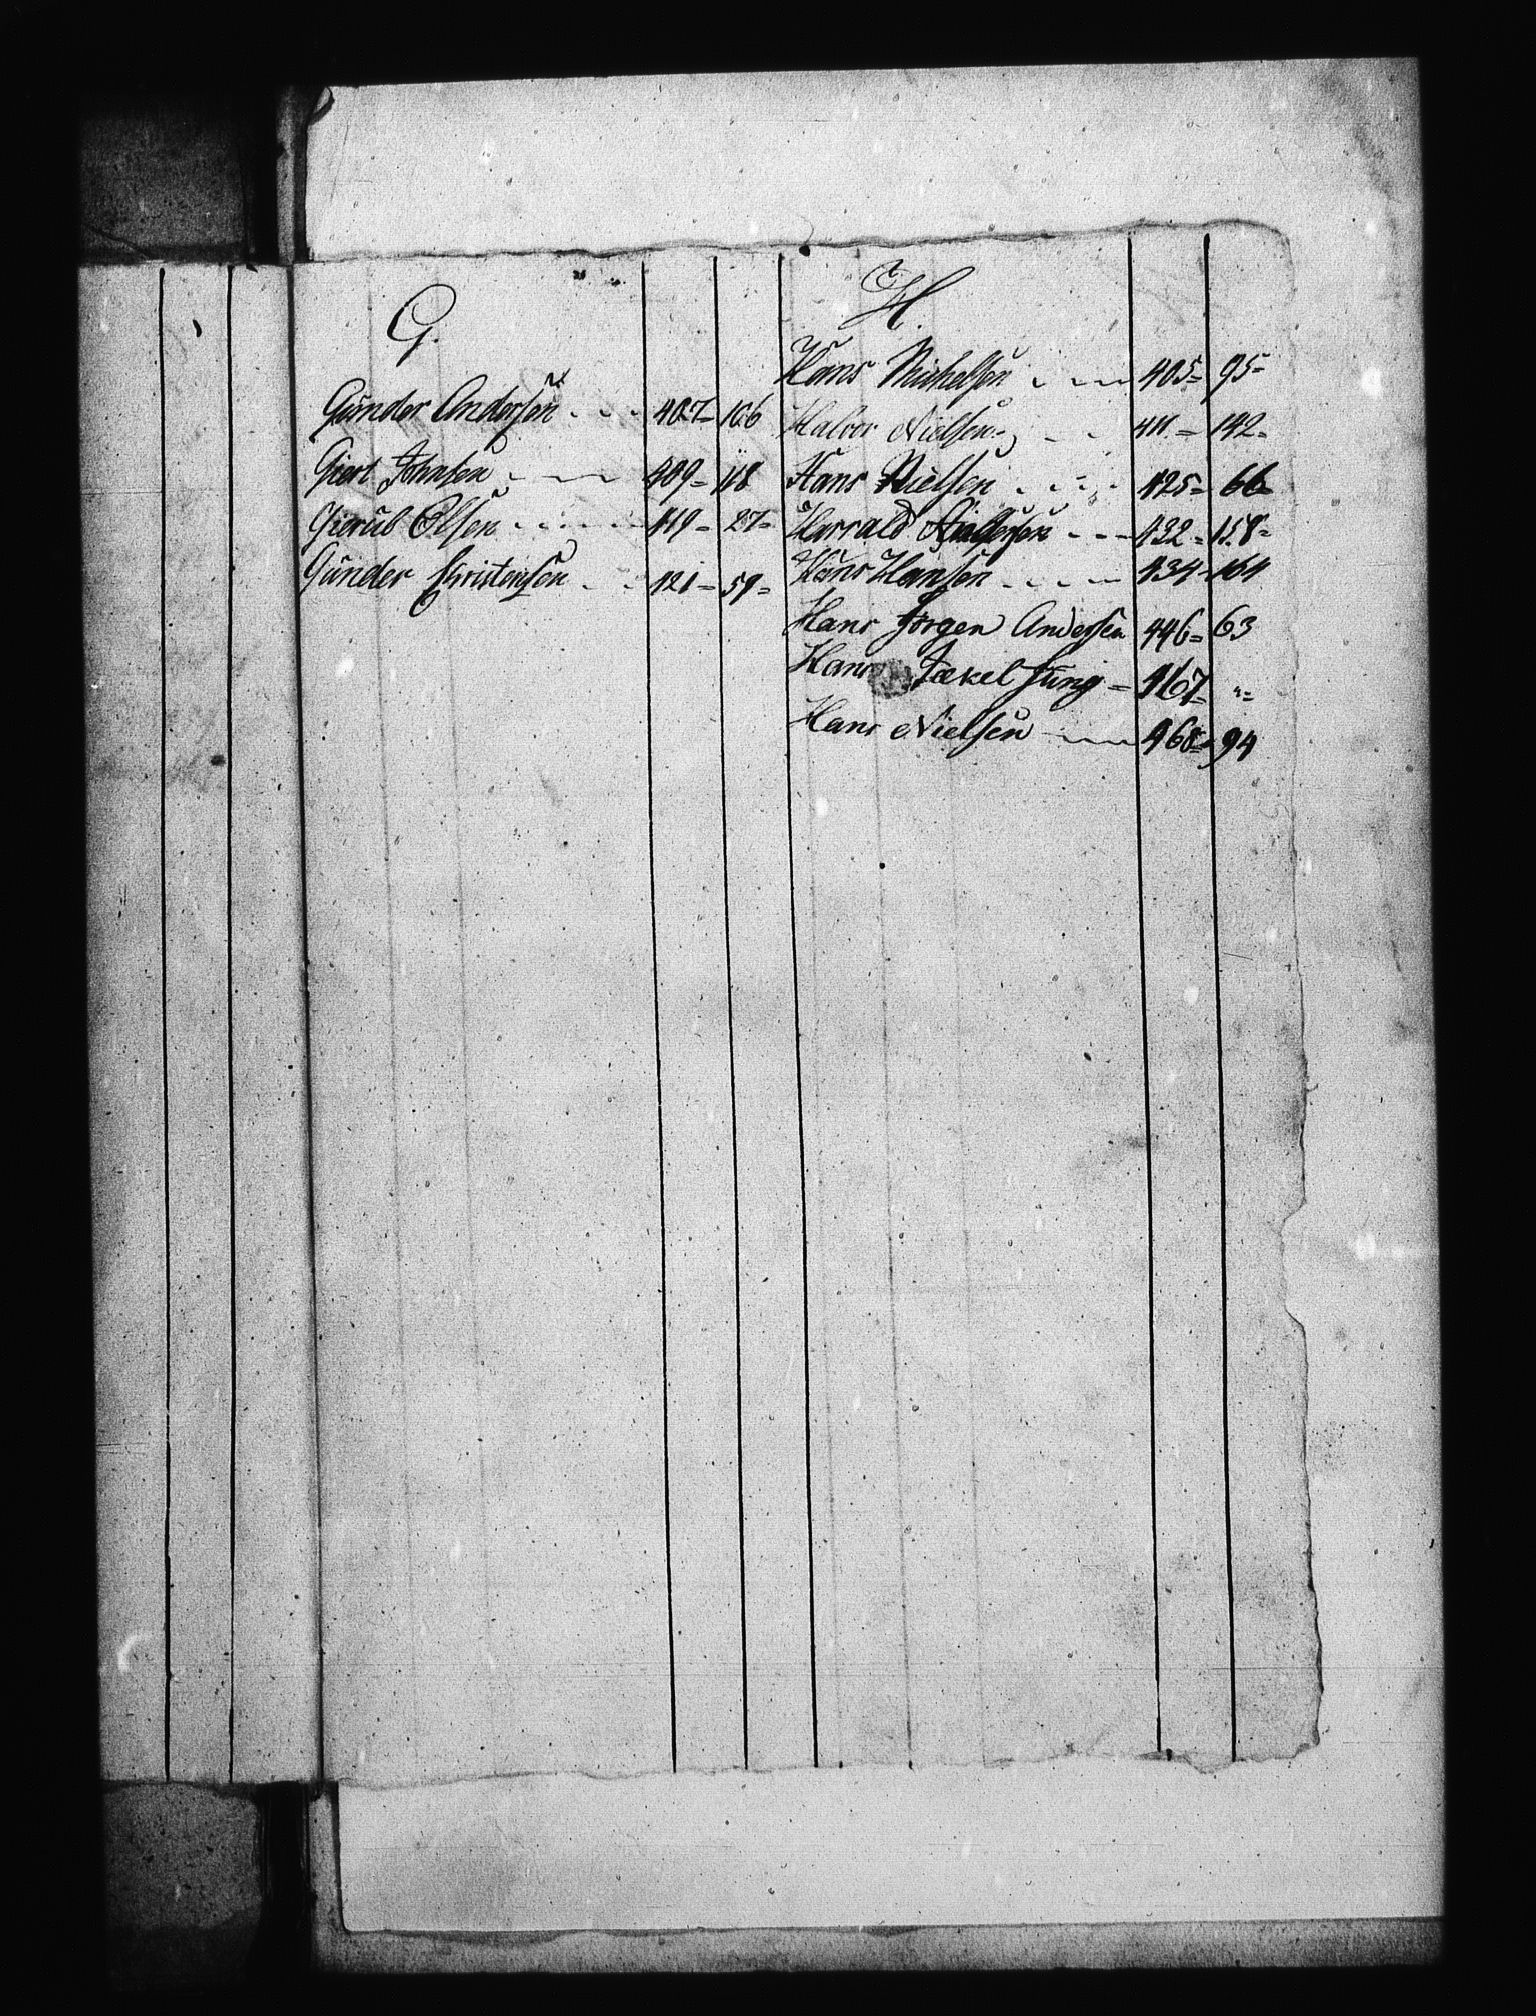 G.
Gunder Andersen . . . 407= 106
Giert Johnsen . 409= 118
Gierul Olsen . . . . . 419= 27=
Gunder Christensen . . 421= 59=
H.
Hans Michelsen . 405= 95=
Halvor Nielsen . . 411.= 142=
Hans Nielsen . . . . 425= 66=
Harrald . . . 432= 158=
Hans Hansen . . . . 434= 164
Hans Jorgen Andersen 446= 63
Hans Jækel Jung = 467= "=
Hans Nielsen 468= 94